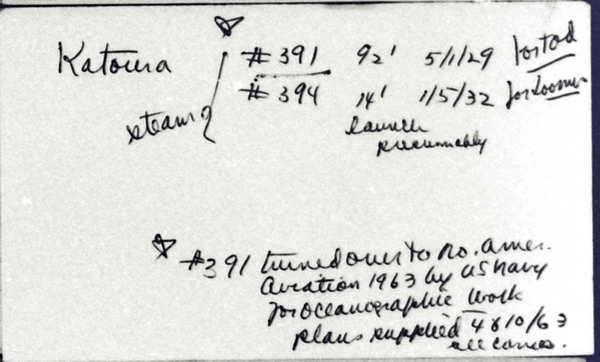 Katoura #391 92' 5/1/29 for Tod
steam? #394 14' 1/5/32 for
launch
presumably
#391 turned over to No. Amer.
Aviation 1963 by US Navy
for oceanographic work
plans supplied 4/10/63